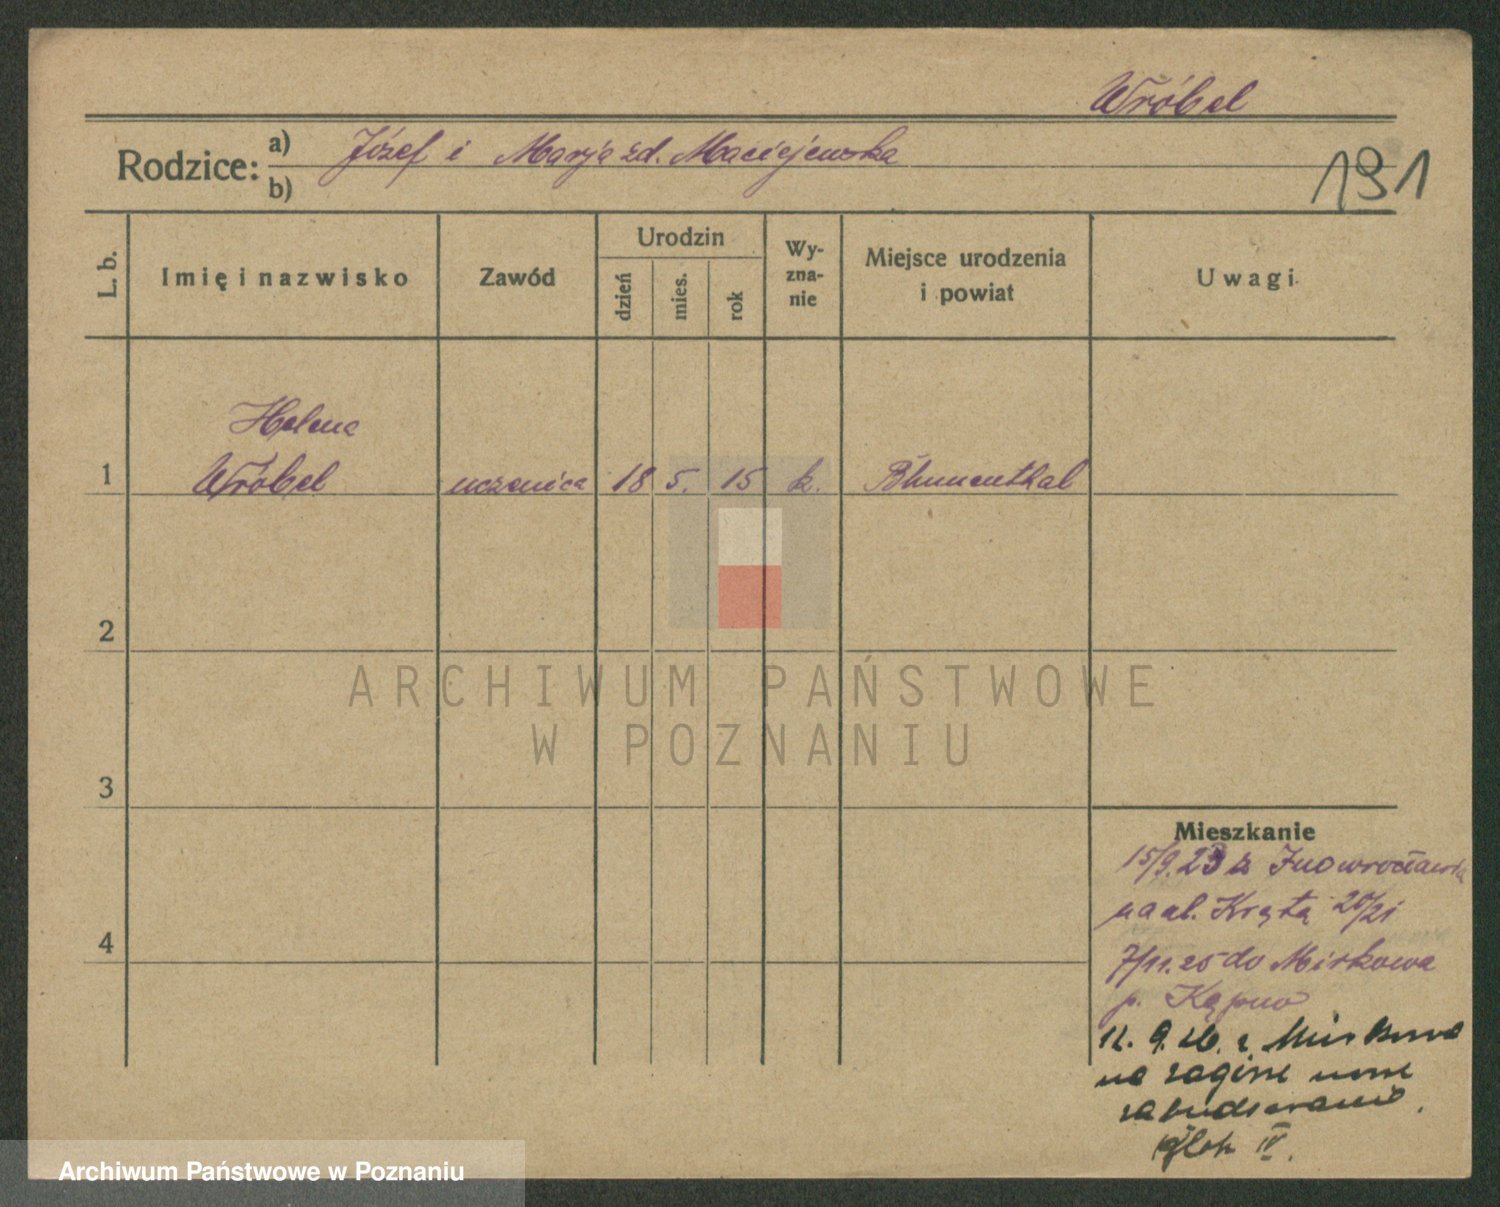 Wróbel
Rodzice: a) Józef i Marja zd. Maciejewska
b)
191
L. b.
Imię i nazwisko
Zawód
Urodzin
dzień
mies.
rok
Wy-
zna-
nie
Miejsce urodzenia
i powiat
Uwagi
Helena
1 Wróbel uczenica 18 5. 15 k. Blumenthal
2
ARCHIWUM PAŃSTWOWE
W POZNANIU
3
4
Mieszkanie
15/9.23 z Inowrocławia
na ul. Krętą 20/21
7/11.25 do Mirkowa
p. Kępno
12. 9. 26. z Mirkowa
na nowe
zabudowanie.
Blok IV.
Archiwum Państwowe w Poznaniu